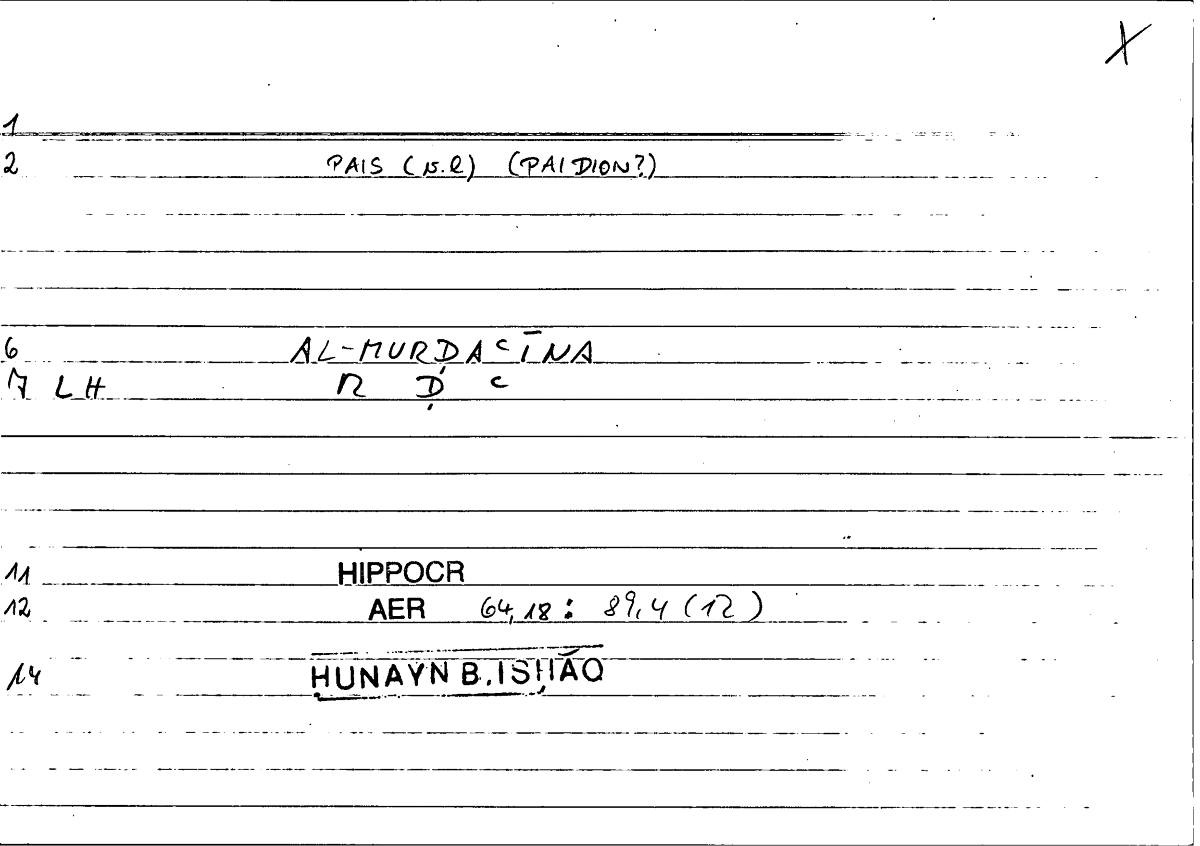 X
1
2 PAIS (s.l) (PAIDION?)
6 AL-MURḌAʿĪNA
7 LH R Ḍ ʿ
11 HIPPOCR
12 AER 64,18 : 89,4 (12)
14 ḤUNAYN B. ISḤĀQ